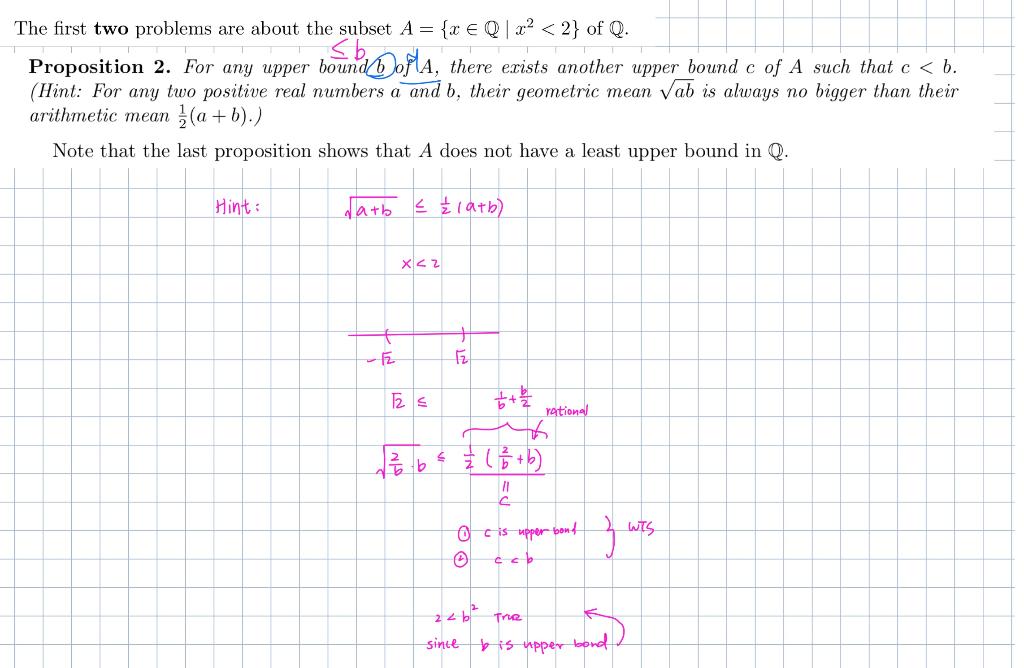 The first two problems are about the subset A = {x ∈ ℚ | x² < 2} of ℚ.
≤ b
Proposition 2. For any upper bound b of A, there exists another upper bound c of A such that c < b.
(Hint: For any two positive real numbers a and b, their geometric mean √ab is always no bigger than their
arithmetic mean ½(a + b).)
Note that the last proposition shows that A does not have a least upper bound in ℚ.
Hint: √a+b ≤ ½(a+b)
x < 2
-√2 √2
√2 ≤ 1/b + b/2
rational
√(2/b · b) ≤ ½(2/b + b)
=
C
① c is upper bond } WTS
② c < b
2 < b² True
since b is upper bond